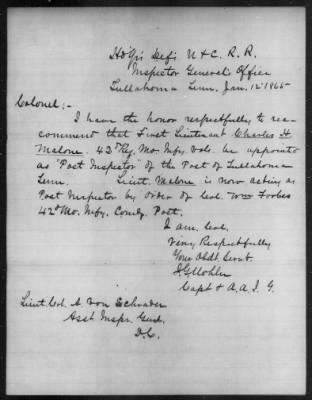 Hd Qrs Defs N & C. R. R.
Inspector General's Office
Tullahoma Tenn. Jan. 12" 1865
Colonel;-
I have the honor respectfully to re-
commend that First Lieutenant Charles H
Malone. 42d Reg. Mo. Infy. Vols. be appointed
as "Post Inspector" of the Post of Tullahoma
Tenn. Lieut. Malone is now acting as
Post Inspector by order of Col. Wm Forbes
42d Mo. Infy. Comdg. Post.
I am, Col.
Very Respectfully
Your Obdt. Servt.
Capt & A. A. I. G.
Lieut. Col. A. von Schrader
Asst Inspr. Genl.
D.C.